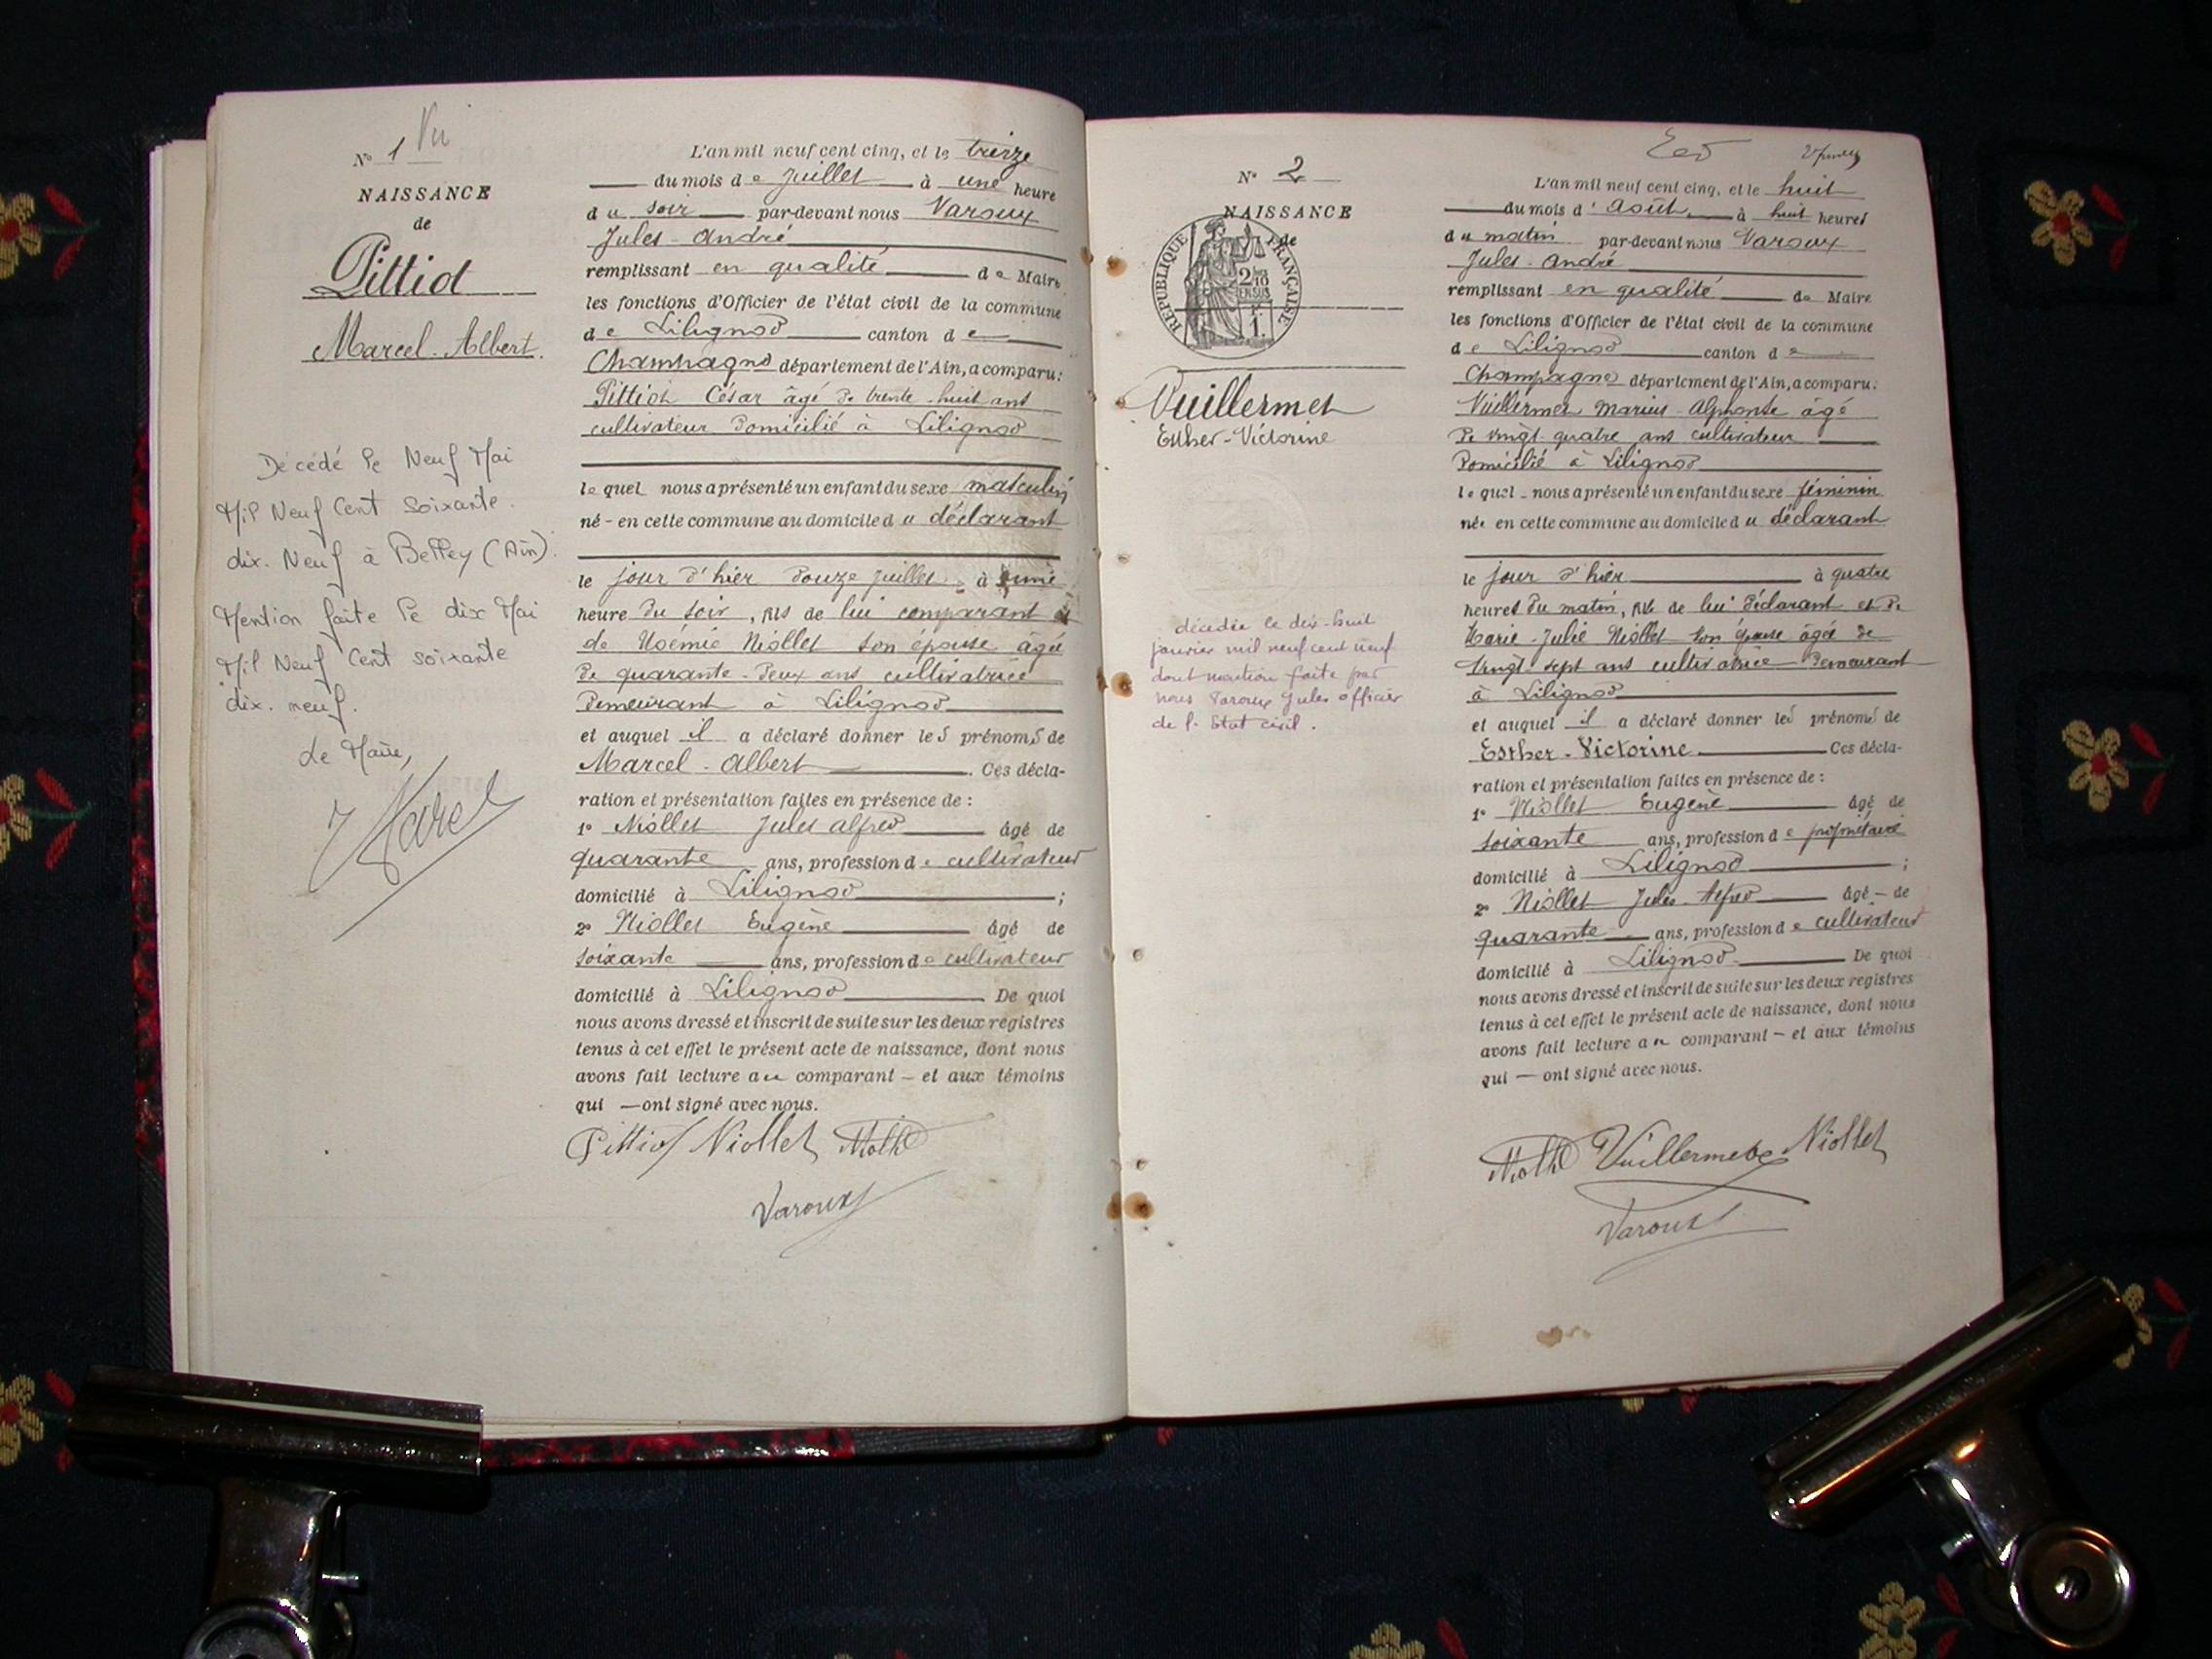 N° 1
NAISSANCE
de
Pittiot
Marcel-Albert.
Décédé le Neuf Mai
Mil Neuf Cent Soixante.
dix. Neuf à Belley (Ain).
Mention faite le dix Mai
Mil Neuf Cent soixante
dix. neuf.
Le Maire,
L'an mil neuf cent cinq, et le treize
du mois de Juillet à une heure
du soir par-devant nous Varoux
Jules-André
remplissant en qualité de Maire
les fonctions d'Officier de l'état civil de la commune
de Lilignod canton de
Champagne département de l'Ain, a comparu:
Pittiot César âgé de trente-huit ans
cultivateur domicilié à Lilignod
lequel nous a présenté un enfant du sexe masculin
né - en cette commune au domicile du déclarant
le jour d'hier douze juillet à une
heure du soir, fils de lui comparant et
de Noémie Niollet son épouse âgée
de quarante-deux ans cultivatrice
demeurant à Lilignod
et auquel il a déclaré donner les prénoms de
Marcel-Albert. Ces décla-
ration et présentation faites en présence de :
1° Niollet Jules alfred âgé de
quarante ans, profession de cultivateur
domicilié à Lilignod ;
2° Niollet Eugène âgé de
soixante ans, profession de cultivateur
domicilié à Lilignod De quoi
nous avons dressé et inscrit de suite sur les deux registres
tenus à cet effet le présent acte de naissance, dont nous
avons fait lecture au comparant - et aux témoins
qui — ont signé avec nous.
Pittiot Niollet
Varoux
N° 2
NAISSANCE
de
RÉPUBLIQUE FRANÇAISE
Vuillermet
Esther-Victorine
décédée le dix-huit
janvier mil neuf cent neuf
dont mention faite par
nous Varoux Jules officier
de l'Etat civil.
L'an mil neuf cent cinq, et le huit
du mois d'août à huit heures
du matin par-devant nous Varoux
Jules-André
remplissant en qualité de Maire
les fonctions d'Officier de l'état civil de la commune
de Lilignod canton de
Champagne département de l'Ain, a comparu:
Vuillermet Marius-Alphonse âgé
de vingt-quatre ans cultivateur
domicilié à Lilignod
lequel - nous a présenté un enfant du sexe féminin
née en cette commune au domicile du déclarant
le jour d'hier à quatre
heures du matin, fille de lui déclarant et de
Marie-Julie Niollet son épouse âgée de
vingt-sept ans cultivatrice demeurant
à Lilignod
et auquel il a déclaré donner les prénoms de
Esther-Victorine Ces décla-
ration et présentation faites en présence de :
1° Niollet Eugène âgé de
soixante ans, profession de propriétaire
domicilié à Lilignod ;
2° Niollet Jules-Alfred âgé - de
quarante ans, profession de cultivateur
domicilié à Lilignod De quoi
nous avons dressé et inscrit de suite sur les deux registres
tenus à cet effet le présent acte de naissance, dont nous
avons fait lecture au comparant - et aux témoins
qui — ont signé avec nous.
Vuillermet Niollet
Varoux